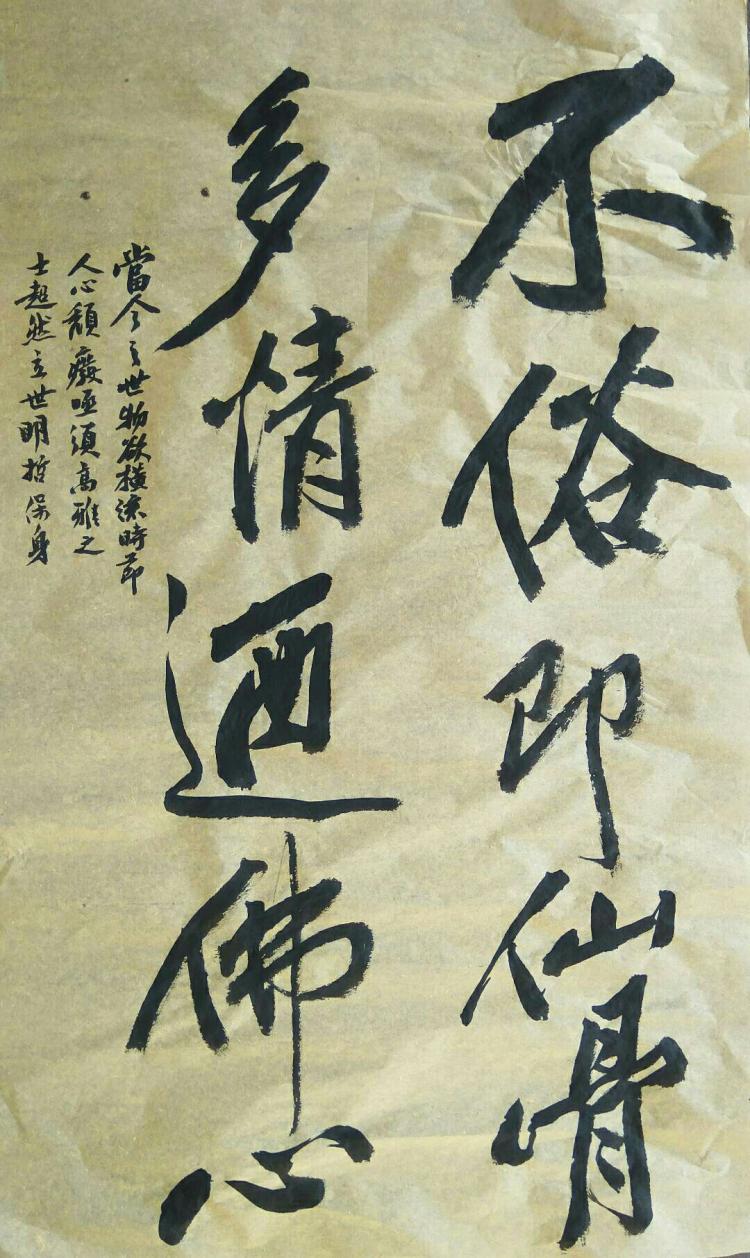 不俗即仙骨
多情迺佛心
當今之世物欲橫流時節
人心頹廢亟須高雅之
士超然立世明哲保身